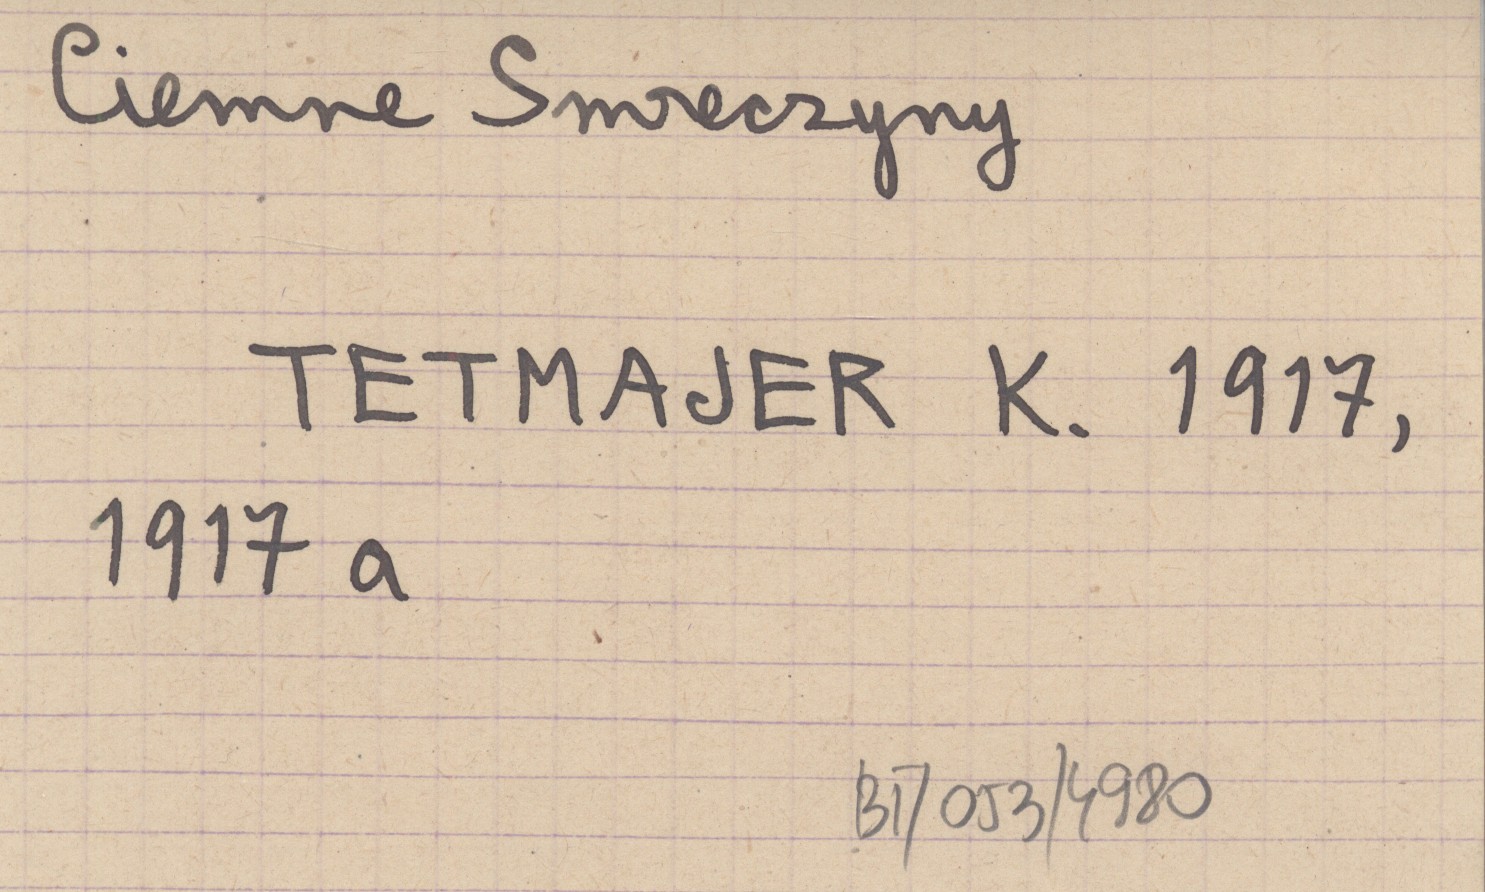 Ciemne Smreczyny
TETMAJER K. 1917,
1917 a
BT/053/4980